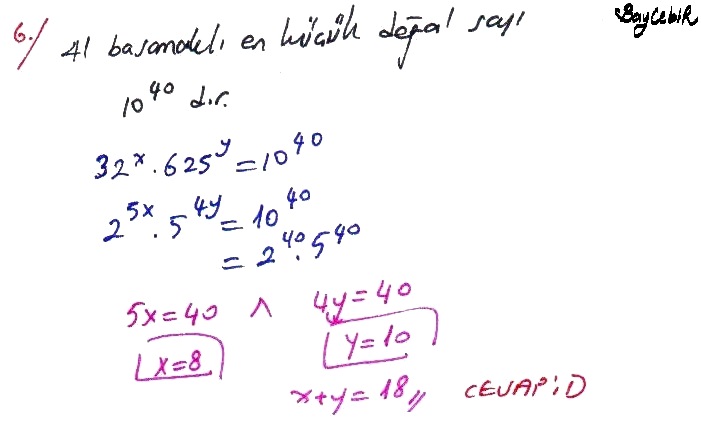 6./ 41 basamaklı en küçük doğal sayı
BayCebiR
10^40 dır.
32^x . 625^y = 10^40
2^5x . 5^4y = 10^40
= 2^40 . 5^40
5x=40 ∧ 4y=40
x=8 y=10
x+y=18// CEVAP:D